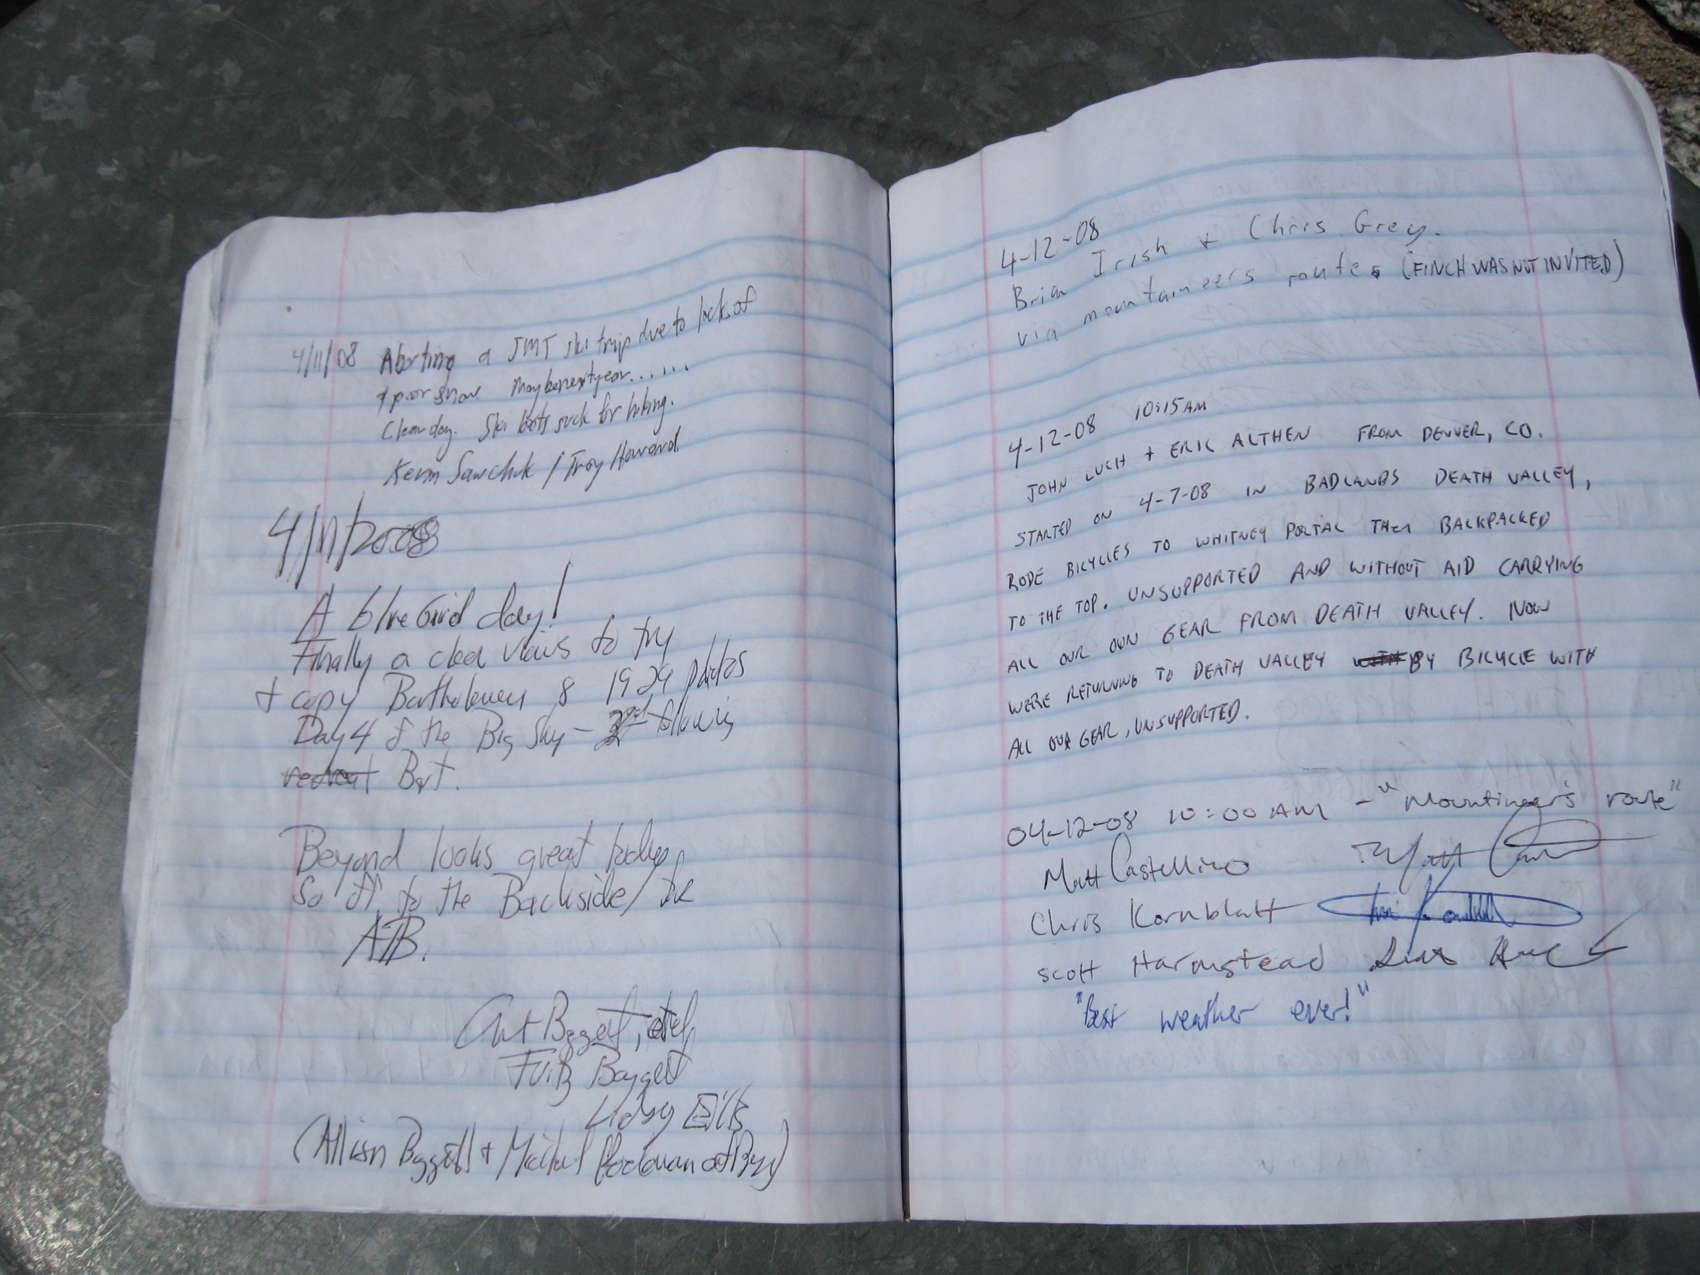 4/11/08 Aborting a JMT ski trip due to lack of
+ poor snow Maybe next year......
Clear day. Ski boots suck for hiking.
Kevin Sawchuk / Troy Howard
4/11/2008
A blue Grid day!
Finally a clear views to try
+ copy Bartholomew 8 1929 photos
Day 4 of the Big Sky - 2nd following
Bart.
Beyond looks great today,
So off to the Backside / the
ATB.
Baggett,
Fritz Baggett
(Allison Baggett + Michael
4-12-08
Brian Irish + Chris Grey.
via mountaineers route (FINCH WAS NOT INVITED)
4-12-08 10:15AM
JOHN LUCH + ERIC ALTHEN FROM DENVER, CO.
STARTED ON 4-7-08 IN BADLANDS DEATH VALLEY,
RODE BICYCLES TO WHITNEY PORTAL THEN BACKPACKED
TO THE TOP. UNSUPPORTED AND WITHOUT AID CARRYING
ALL OUR OWN GEAR FROM DEATH VALLEY. NOW
WERE RETURNING TO DEATH VALLEY WITH BY BICYCLE WITH
ALL OUR GEAR, UNSUPPORTED.
04-12-08 10:00 AM - "Mountineer's route"
Matt Castellino
Chris Kornblatt
Scott Harmstead
"Best weather ever!"